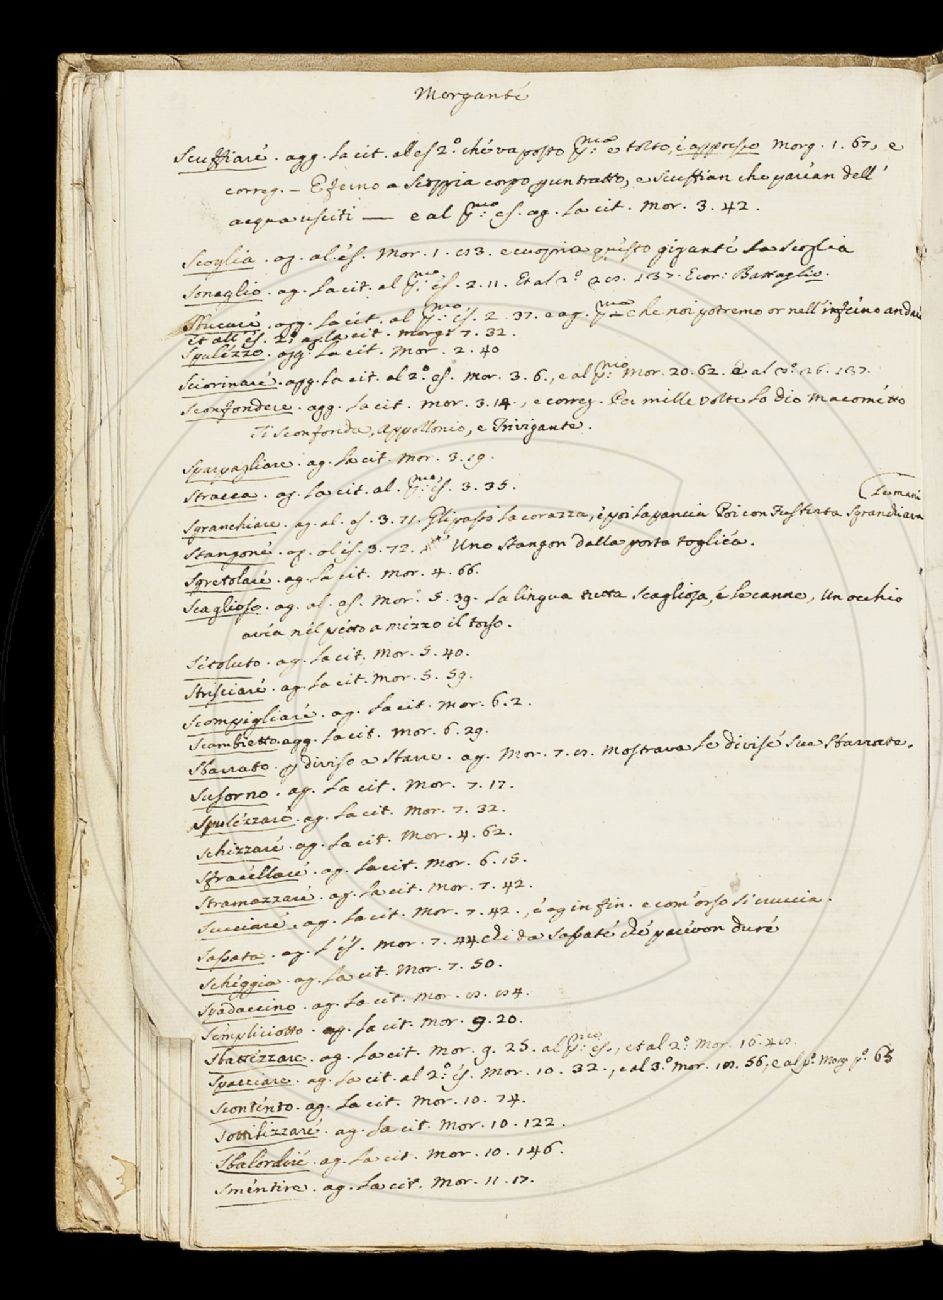 Morganté
Scuffiaré. agg. la cit. all es 2.° ché va posto pmo è tolto, é appresso Morg. 1. 67, e
correg. – E fecino a Scoppia corpo per un tratto, e Scuffian che parean dell'
acqua usciti — e al pmo es. ag. la cit. Mor. 3. 42.
Scoglia. ag. al és. Mor. 1. e cuopria questo giganté la Scoglia
Sonaglio. ag. la cit. al pmo és. 2. 11. Et al 2.° 137. Ecor: Battaglio.
agg. la cit. al pmo és. 2. 37. e ag. che noi potremo or nell' inferno andare
Et all' és. 2.° ag. la cit. Morg. 7. 32.
Spulézzo. agg. la cit. Mor. 2. 40
Sciorinaré. agg. la cit. al 2.° es. Mor. 3. 6., e al pmo Mor. 20. 62. é al 137.
Sconfondere. agg. la cit. Mor. 3. 14., e correg. Per mille volte lo dio Macométto
Ti Sconfonda, Appollonio, e Trivigante.
Sparpagliare. ag. la cit. Mor. 3. 19.
Stracca. ag. la cit. al. pmo és. 3. 35.
(le mani
Sgranchiare. ag. al. es. 3. 71. Gli passò la corazza, é poi la pancia Poi con Frusberta Sgranchiava
Stangoné. ag. al és. 3. 72. Uno Stangon dalla porta togliéa.
Sgretolaré. ag. la cit. Mor. 4. 66.
Scaglioso. ag. al. es. Mor. 5. 39. La lingua tutta Scagliosa, é le canne, Un occhio
avéa nel pétto a mezzo il torso.
Sétoluto. ag. la cit. Mor. 5. 40.
Strisciaré. ag. la cit. Mor. 5. 59.
Scompigliaré. ag. la cit. Mor. 6. 2.
Scambietto. agg. la cit. Mor. 6. 29.
Sbarrato. p diviso a Sbarre. ag. Mor. 7. Mostrava le divisé Sue Sbarrate.
Susorno. ag. la cit. Mor. 7. 17.
Spulézzaré. ag. la cit. Mor. 7. 32.
Schizzaré. ag. la cit. Mor. 4. 62.
Sfracéllaré. ag. la cit. Mor. 6. 15.
Stramazzaré. ag. la cit. Mor. 7. 42.
ag. la cit. Mor. 7. 42., é ag in fin. e com' orso Si cruccia.
Sassata. ag. l' és. Mor. 7. 44 e di da Sassaté ché parévon duré
Schéggia. ag. la cit. Mor. 7. 50.
Spadaccino. ag. la cit. Mor.
Sempliciotto. ag. la cit. Mor. 9. 20.
Sbattizzare. ag. la cit. Mor. 9. 25. al pmo es., et al 2.° Mor. 16.
Spacciare. ag. la cit. al 2.° és. Mor. 10. 32., e al 3.° Mor. 56, e al p.° Morg 9.° 63
Scontento. ag. la cit. Mor. 10. 74.
Sottilizzaré. ag. la cit. Mor. 10. 122.
Sbalordiré. ag. la cit. Mor. 10. 146.
Smentire. ag. la cit. Mor. 11. 17.